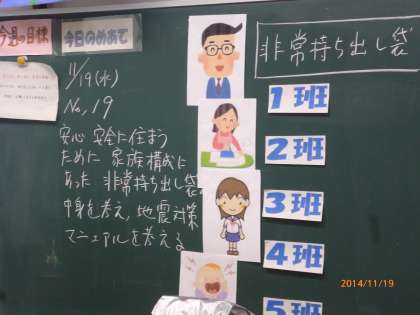 今週の目標
今日のめあて
11/19(水)
No, 19
安心 安全に住まう
ために 家族構成に
あった 非常持ち出し袋の
中身を考え、地震対策
マニュアルを考える
非常持ち出し袋
1班
2班
3班
4班
5班
2014/11/19